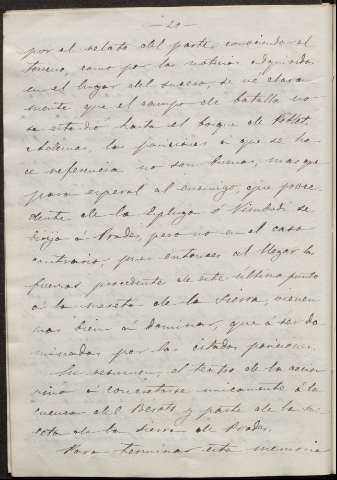 — 20 —
por el relato del parte, conociendo el
terreno, como por las noticias adquiridas
en el lugar del suceso, se ve clara
mente que el campo de batalla no
se estendió hasta el bosque de Poblet
Ademas, las posiciones á que se ha
ce referencia no son buenas, mas que
para esperar al enemigo, que proce
dente de la Espluga ó Vimbodí se
dirija á Prades, pero no en el caso
contrario, pues entonces al llegar la
fuerza procedente de este último punto
á la meseta de la Sierra, vienen
mas bien á dominar, que á ser do
minadas por las citadas posiciones.
En resumen, el teatro de la accion
vino á concretarse unicamente á la
cuenca del y parte de la me
seta de la sierra de Prades.
Para terminar esta memoria